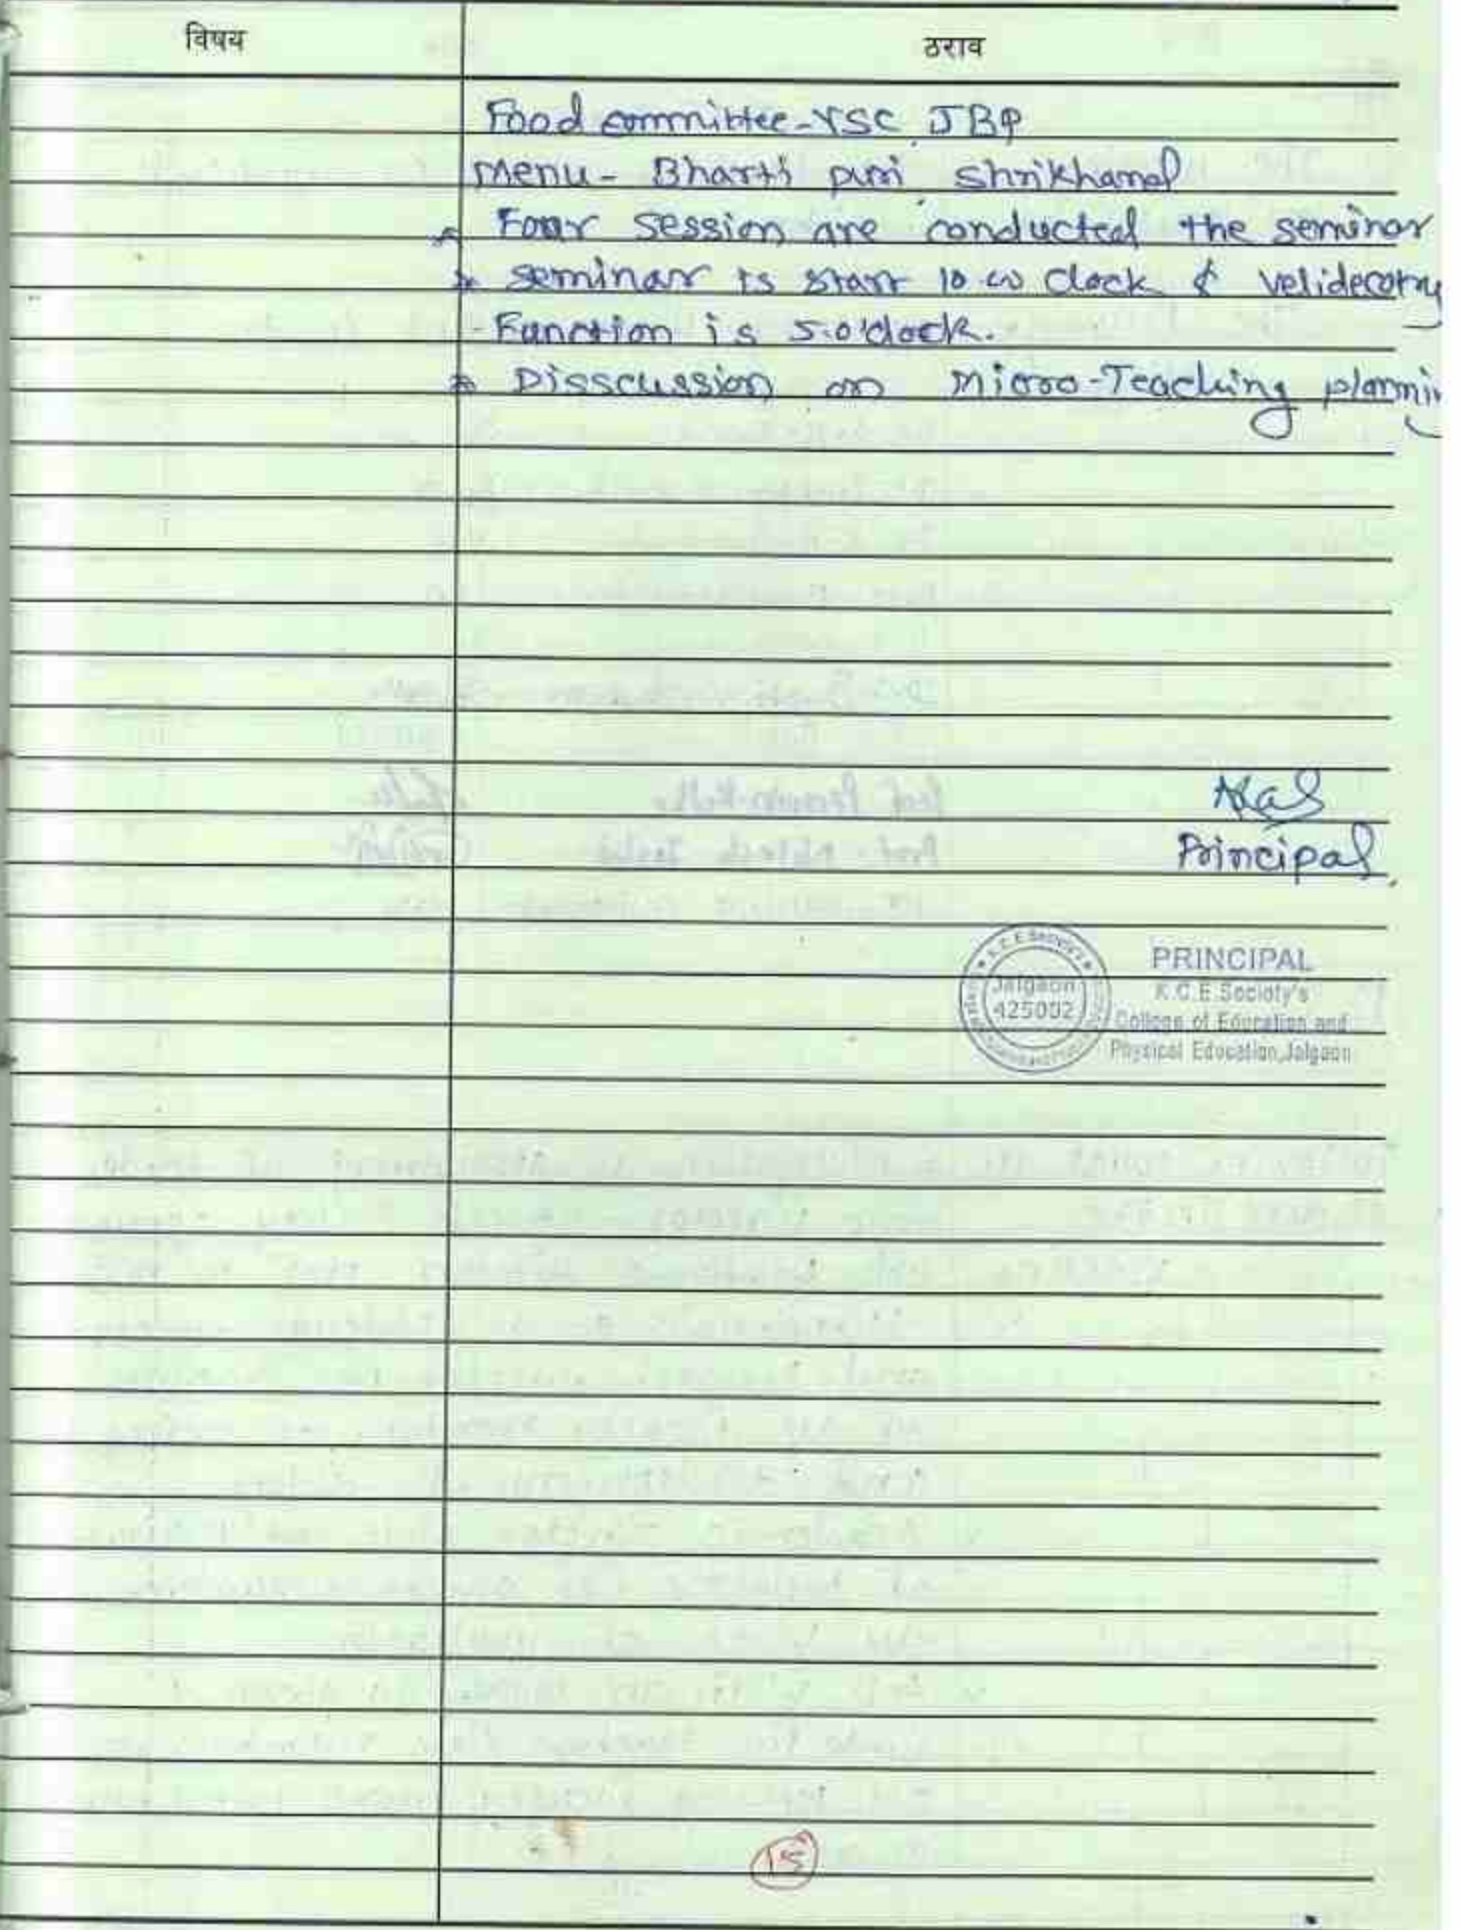 विषय ठराव
Food committee-YSC, JBP
Menu- Bharti puri, shrikhand
* Four session are conducted the seminar
* seminar is start 10.00 clock & velidectry
Function is 5.0'clock.
* Disscussion on Micro-Teaching plannin
Principal.
K.C.E Society's
Jalgaon
425002
PRINCIPAL
K.C.E Society's
College of Education and
Physical Education, Jalgaon
15